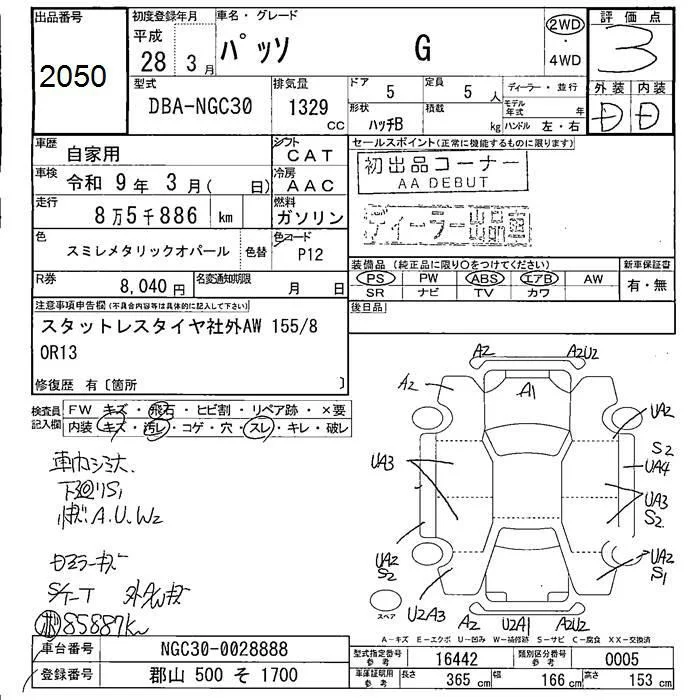 出品番号
2050
初度登録年月
平成
28 3月
車名・グレード
パッソ G
2WD
・
4WD
評価点
3
外装 内装
D D
型式
DBA-NGC30
排気量
1329
CC
ドア
5
定員
5人
形状
ハッチB
積載
kg
ディーラー・並行
モデル年式 年
ハンドル 左・右
車歴
自家用
シフト
CAT
車検
令和 9年 3月( 日)
冷房
AAC
走行
8万5千886 km
燃料
ガソリン
色
スミレメタリックオパール
色替
色コード
P12
R券
8,040円
名変通知期限
月 日
セールスポイント(正常に機能するものに限ります)
初出品コーナー
AA DEBUT
ディーラー出品車
装備品(純正品に限り○をつけてください)
PS PW ABS エアB AW
SR ナビ TV カワ
新車保証書
有・無
後日品
注意事項申告欄(不具合内容等は具体的に記入して下さい)
スタットレスタイヤ社外AW 155/8
0R13
修復歴 有〔箇所 〕
検査員
記入欄
FW キズ・飛石・ヒビ割・リペア跡・×要
内装・キズ・汚レ・コゲ・穴・スレ・キレ・破レ
車内シミ大
下廻りS1
A.U.W2
ミラーキズ
外AWキズ
85887km
A2 A2U2
A2 A1
UA2
S2
UA4
UA3
UA3
S2
UA2
S2
UA2
S1
U2A3
A2 U2A1 A2U2
スペア
A-キズ E-エクボ U-凹み W-補修跡 S-サビ C-腐食 XX-交換済
車台番号
NGC30-0028888
登録番号
郡山 500 そ 1700
型式指定番号
参考
16442
類別区分番号
参考
0005
車庫証明用
参考
長さ 365 cm 幅 166 cm 高さ 153 cm